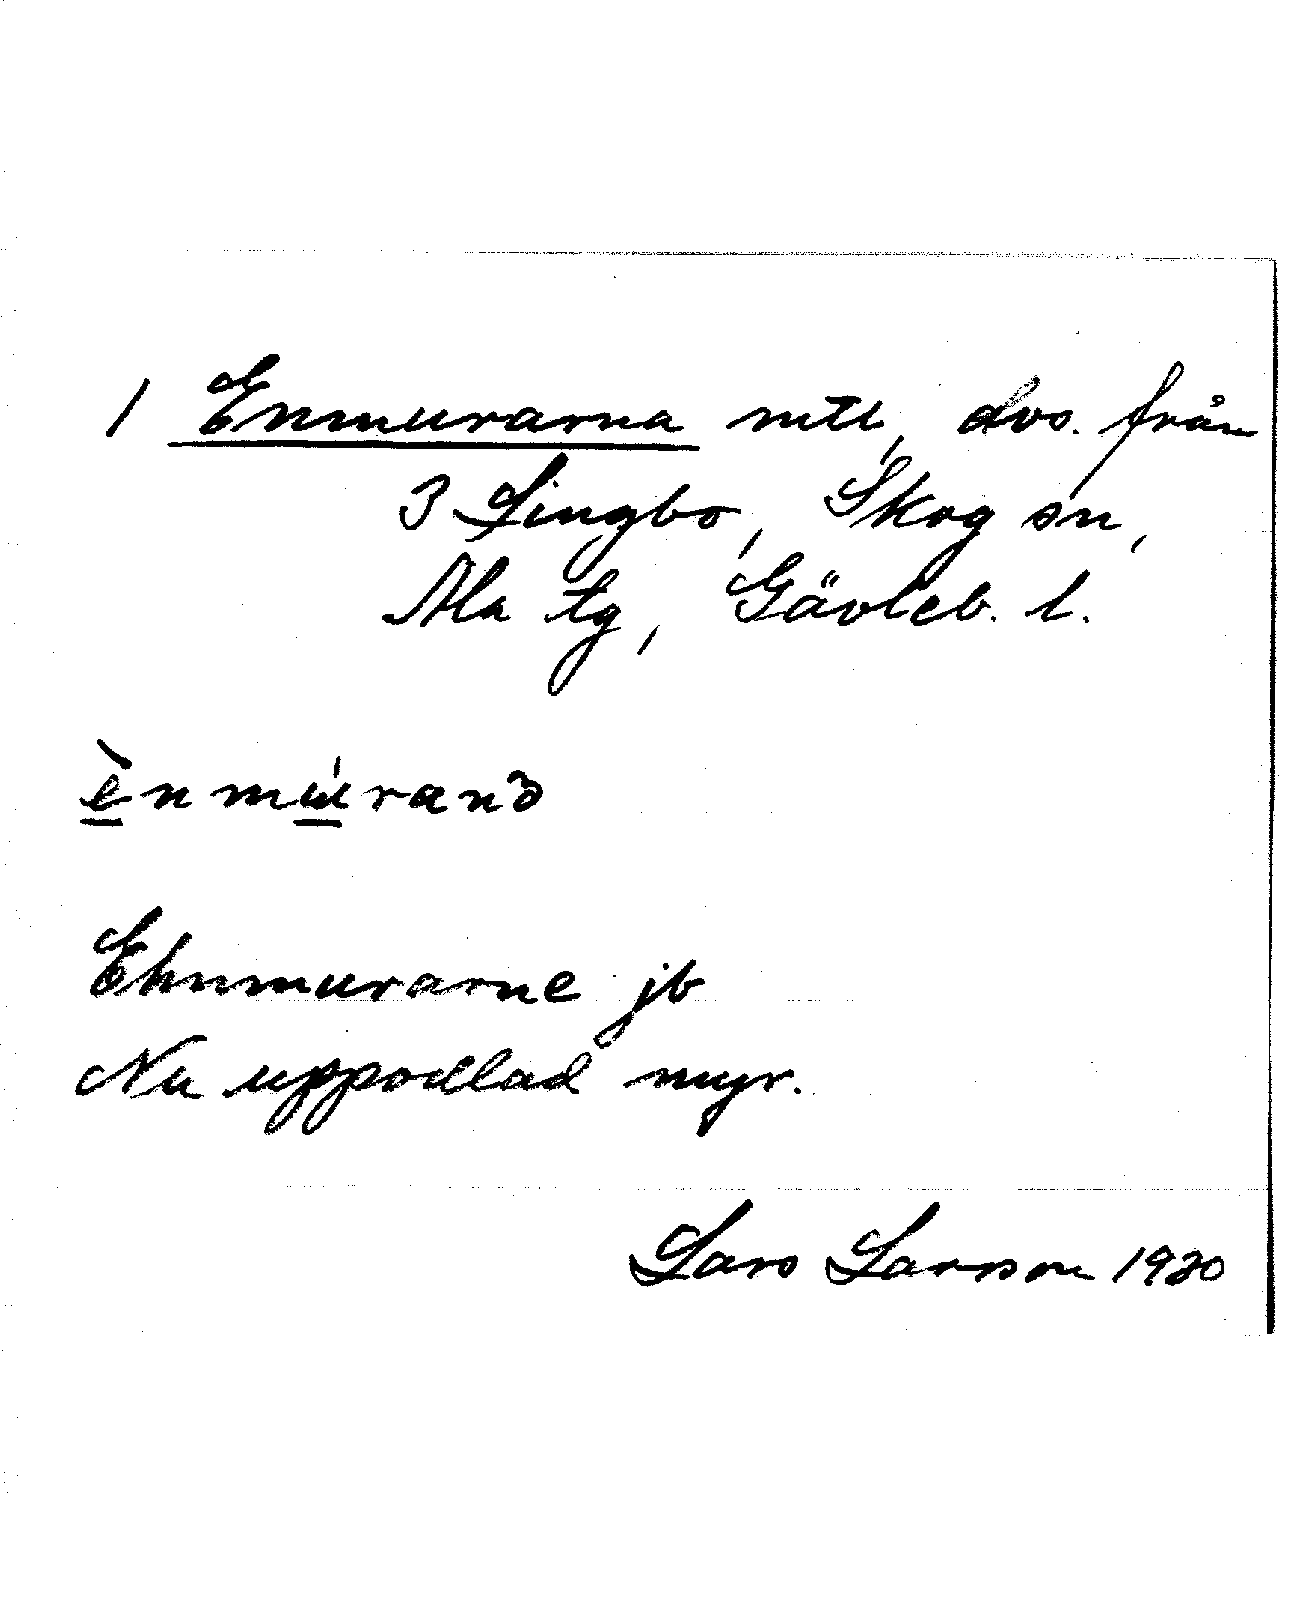 1 Enmurarna mtl, avs. från
3 Lingbo, Skog sn,
Ala tg, Gävleb. l.
ènmúranə
Ehnmurarne jb
Nu uppodlad myr.
Lars Larsson 1930